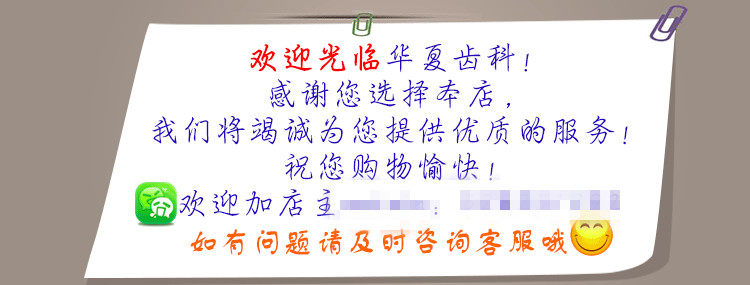 欢迎光临华夏齿科!
感谢您选择本店,
我们将竭诚为您提供优质的服务!
祝您购物愉快!
欢迎加店主
如有问题请及时咨询客服哦